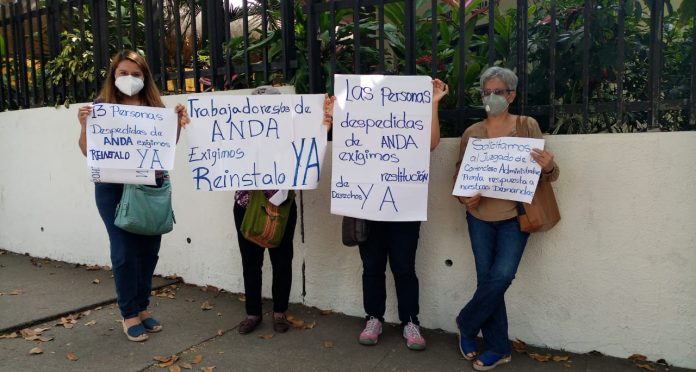 13 Personas
Despedidas de
ANDA exigimos
REINSTALO YA
Trabajadoras de
ANDA
Exigimos
Reinstalo YA
Las Personas
despedidas
de ANDA
exigimos
restitución
de
Derechos YA
Solicitamos
al Juzgado de
Contencioso Administrativo
Pronta respuesta a
nuestras Demandas